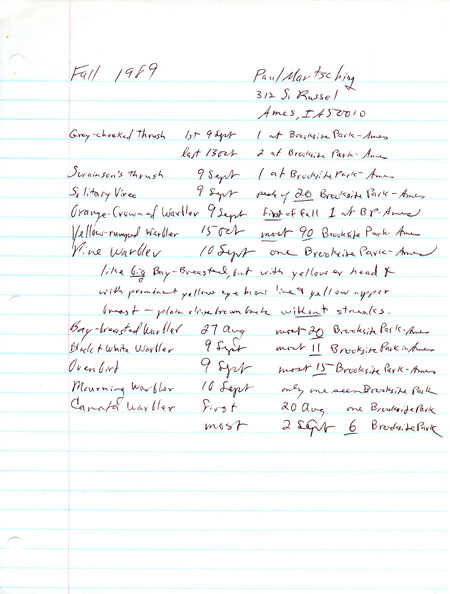 Fall 1989 Paul Martsching
312 S. Russel
Ames, IA 50010
Gray-cheeked Thrush 1st 9 Sept 1 at Brookside Park-Ames
last 13 Oct 2 at Brookside Park-Ames
Swainson's Thrush 9 Sept 1 at Brookside Park-Ames
Solitary Vireo 9 Sept peak of 20 Brookside Park-Ames
Orange-Crowned Warbler 9 Sept first of Fall 1 at BP-Ames
Yellow-rumped Warbler 15 Oct most 90 Brookside Park-Ames
Pine Warbler 10 Sept one Brookside Park-Ames
like big Bay-Breasted, but with yellower head &
with prominent yellow eyebrow line & yellow upper
breast - plain olive brown back without streaks.
Bay-breasted Warbler 27 Aug most 20 Brookside Park-Ames
Black & White Warbler 9 Sept most 11 Brookside Park-Ames
Ovenbird 9 Sept most 15 Brookside Park-Ames
Mourning Warbler 10 Sept only one seen Brookside Park
Canada Warbler first 20 Aug one Brookside Park
most 2 Sept 6 Brookside Park